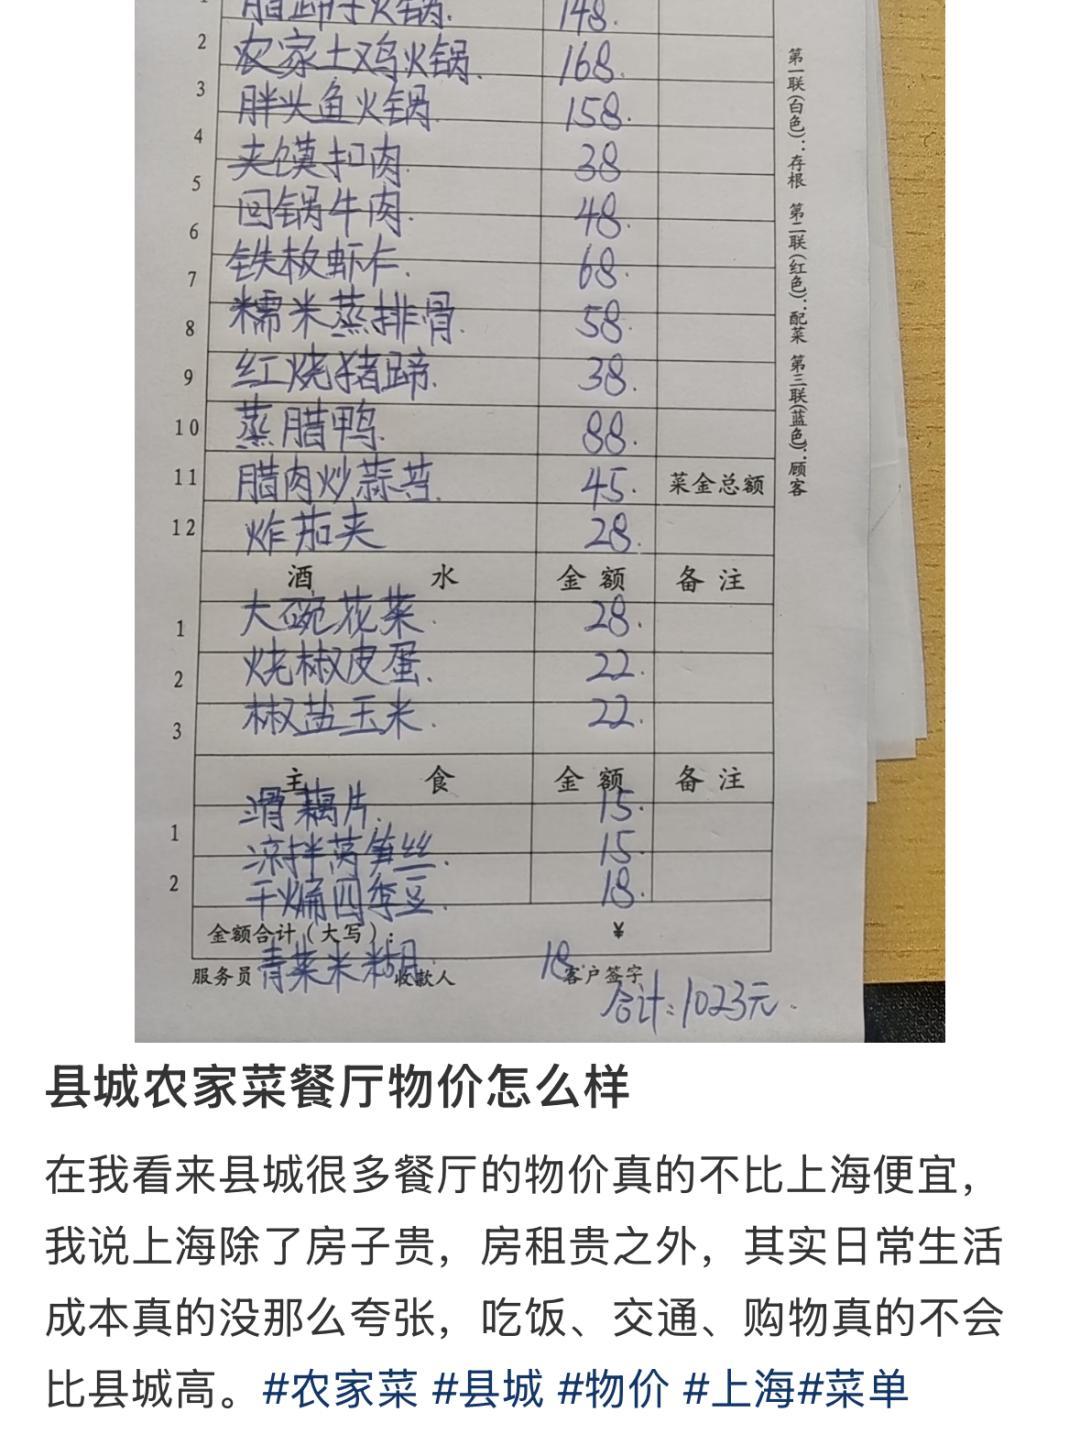 1 腊蹄子火锅. 148.
2 农家土鸡火锅. 168.
3 胖头鱼火锅. 158.
4 夹馍扣肉. 38
5 回锅牛肉. 48.
6 铁板虾仁. 68.
7 糯米蒸排骨. 58.
8 红烧猪蹄. 38.
9 蒸腊鸭. 88.
10 腊肉炒蒜苔. 45. 菜金总额
11 炸茄夹 28.
12
酒 水 金 额 备 注
大碗花菜. 28.
1 烧椒皮蛋. 22.
2 椒盐玉米. 22.
3
主 食 金 额 备 注
滑藕片. 15.
1 凉拌莴笋丝. 15.
2 干煸四季豆. 18.
金额合计(大写): ¥
服务员 青菜米糊. 收款人 18. 客户签字
合计:1023元.
第一联(白色):存根 第二联(红色):配菜 第三联(蓝色):顾客
县城农家菜餐厅物价怎么样
在我看来县城很多餐厅的物价真的不比上海便宜,
我说上海除了房子贵,房租贵之外,其实日常生活
成本真的没那么夸张,吃饭、交通、购物真的不会
比县城高。#农家菜 #县城 #物价 #上海#菜单